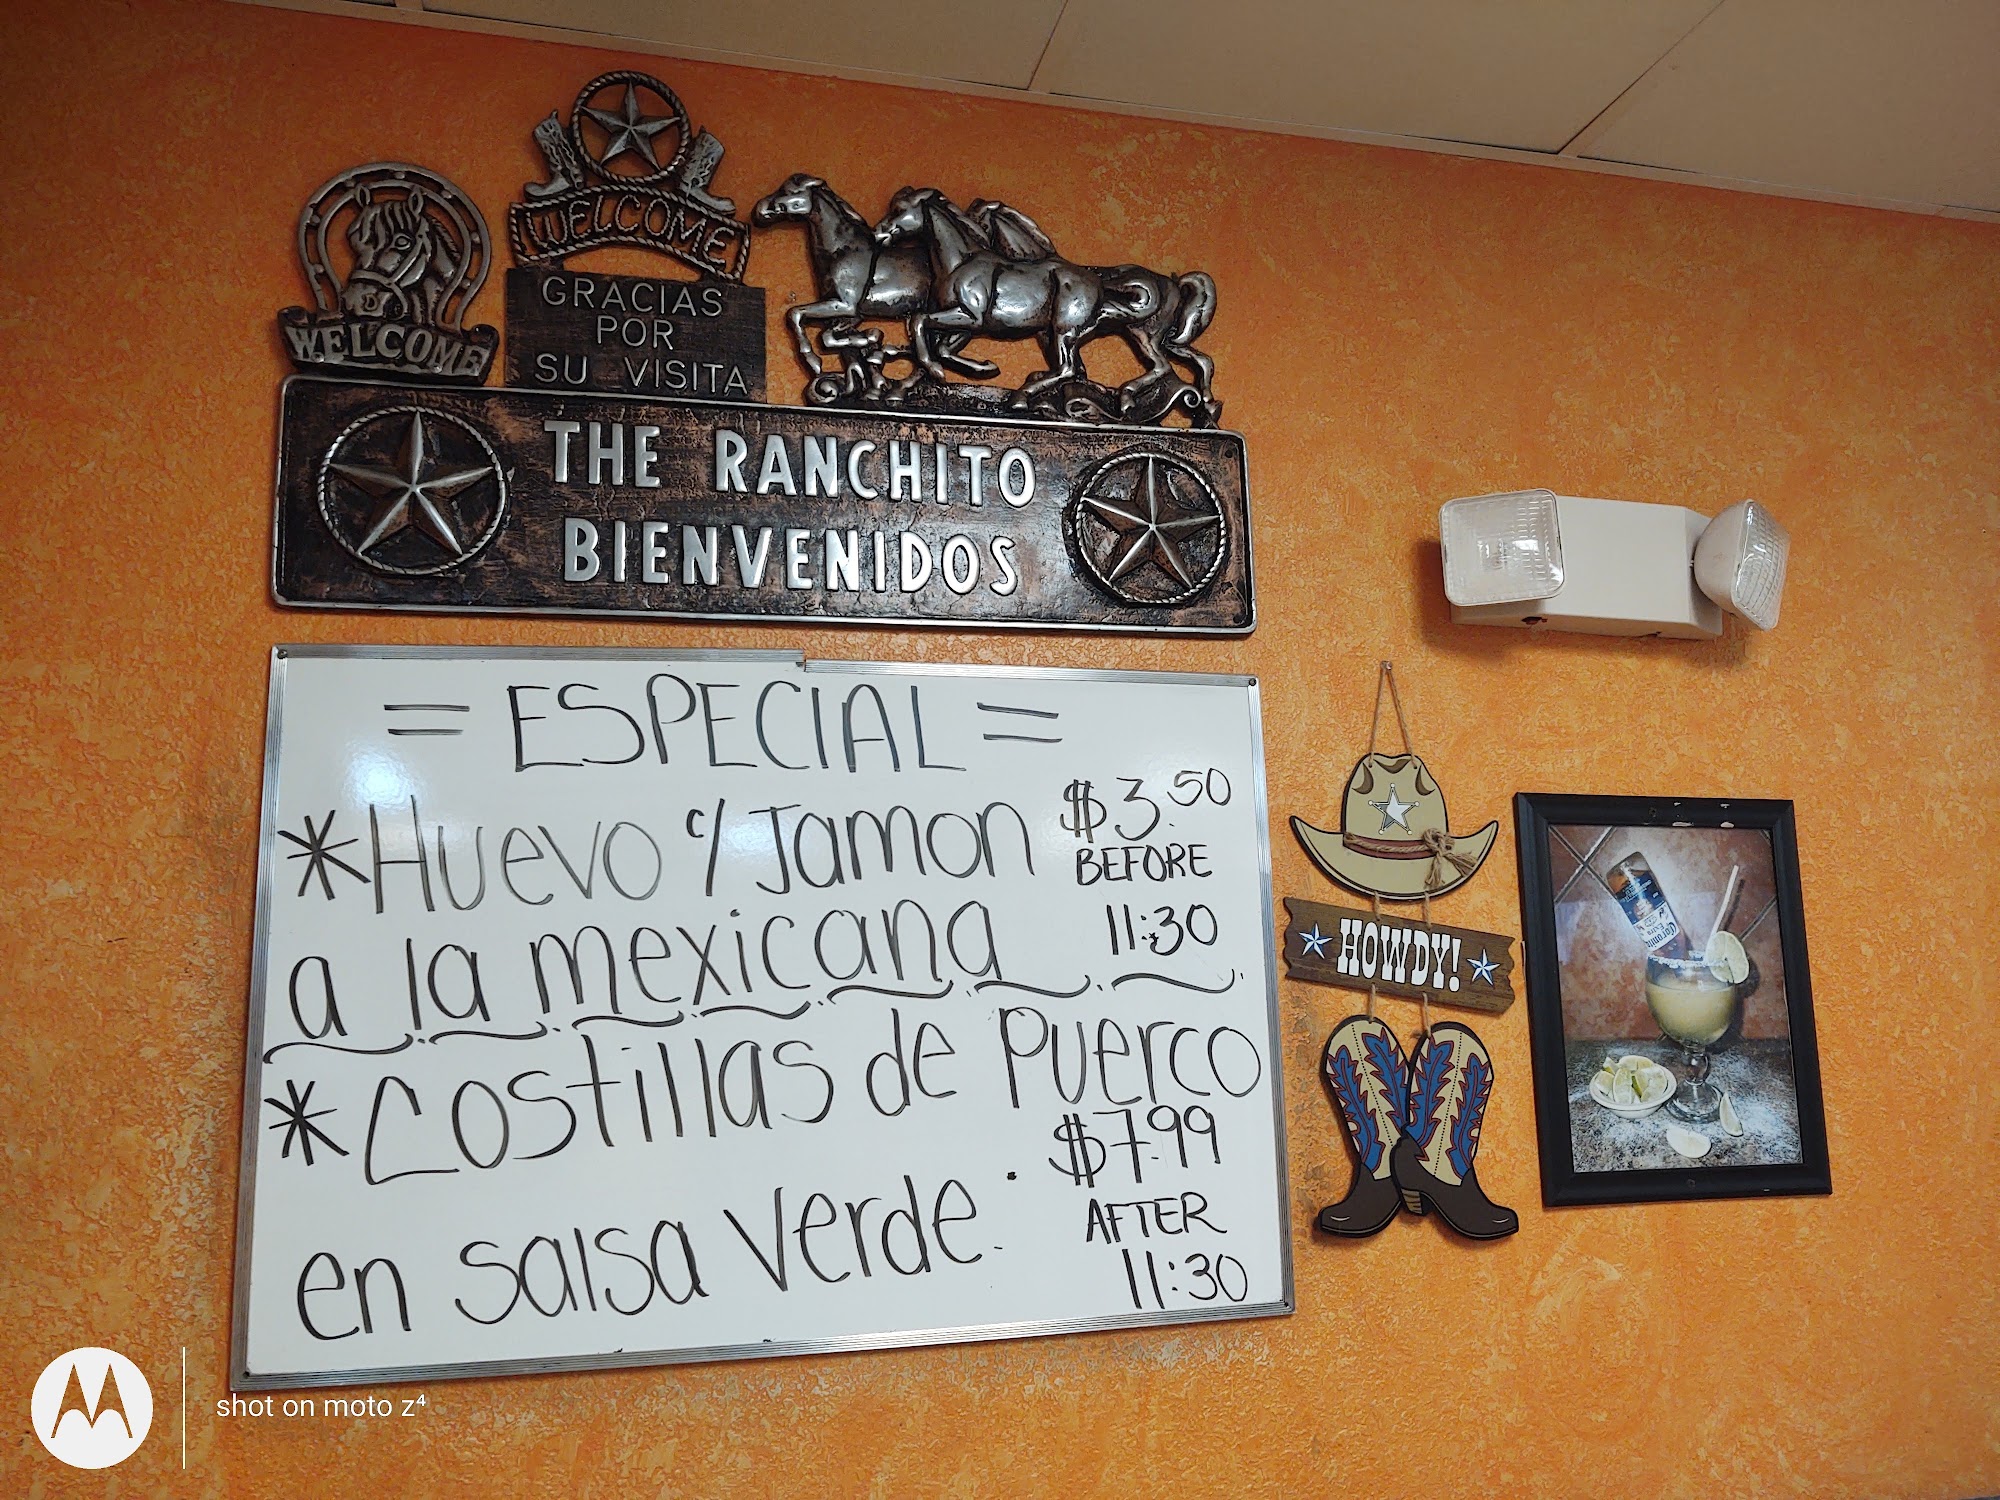 WELCOME
WELCOME
GRACIAS
POR
SU VISITA
THE RANCHITO
BIENVENIDOS
= ESPECIAL =
*Huevo c/Jamon $3.50
BEFORE
a la mexicana 11:30
*Costillas de Puerco
$7.99
en salsa verde. AFTER
11:30
HOWDY!
Corona
Extra
shot on moto z⁴